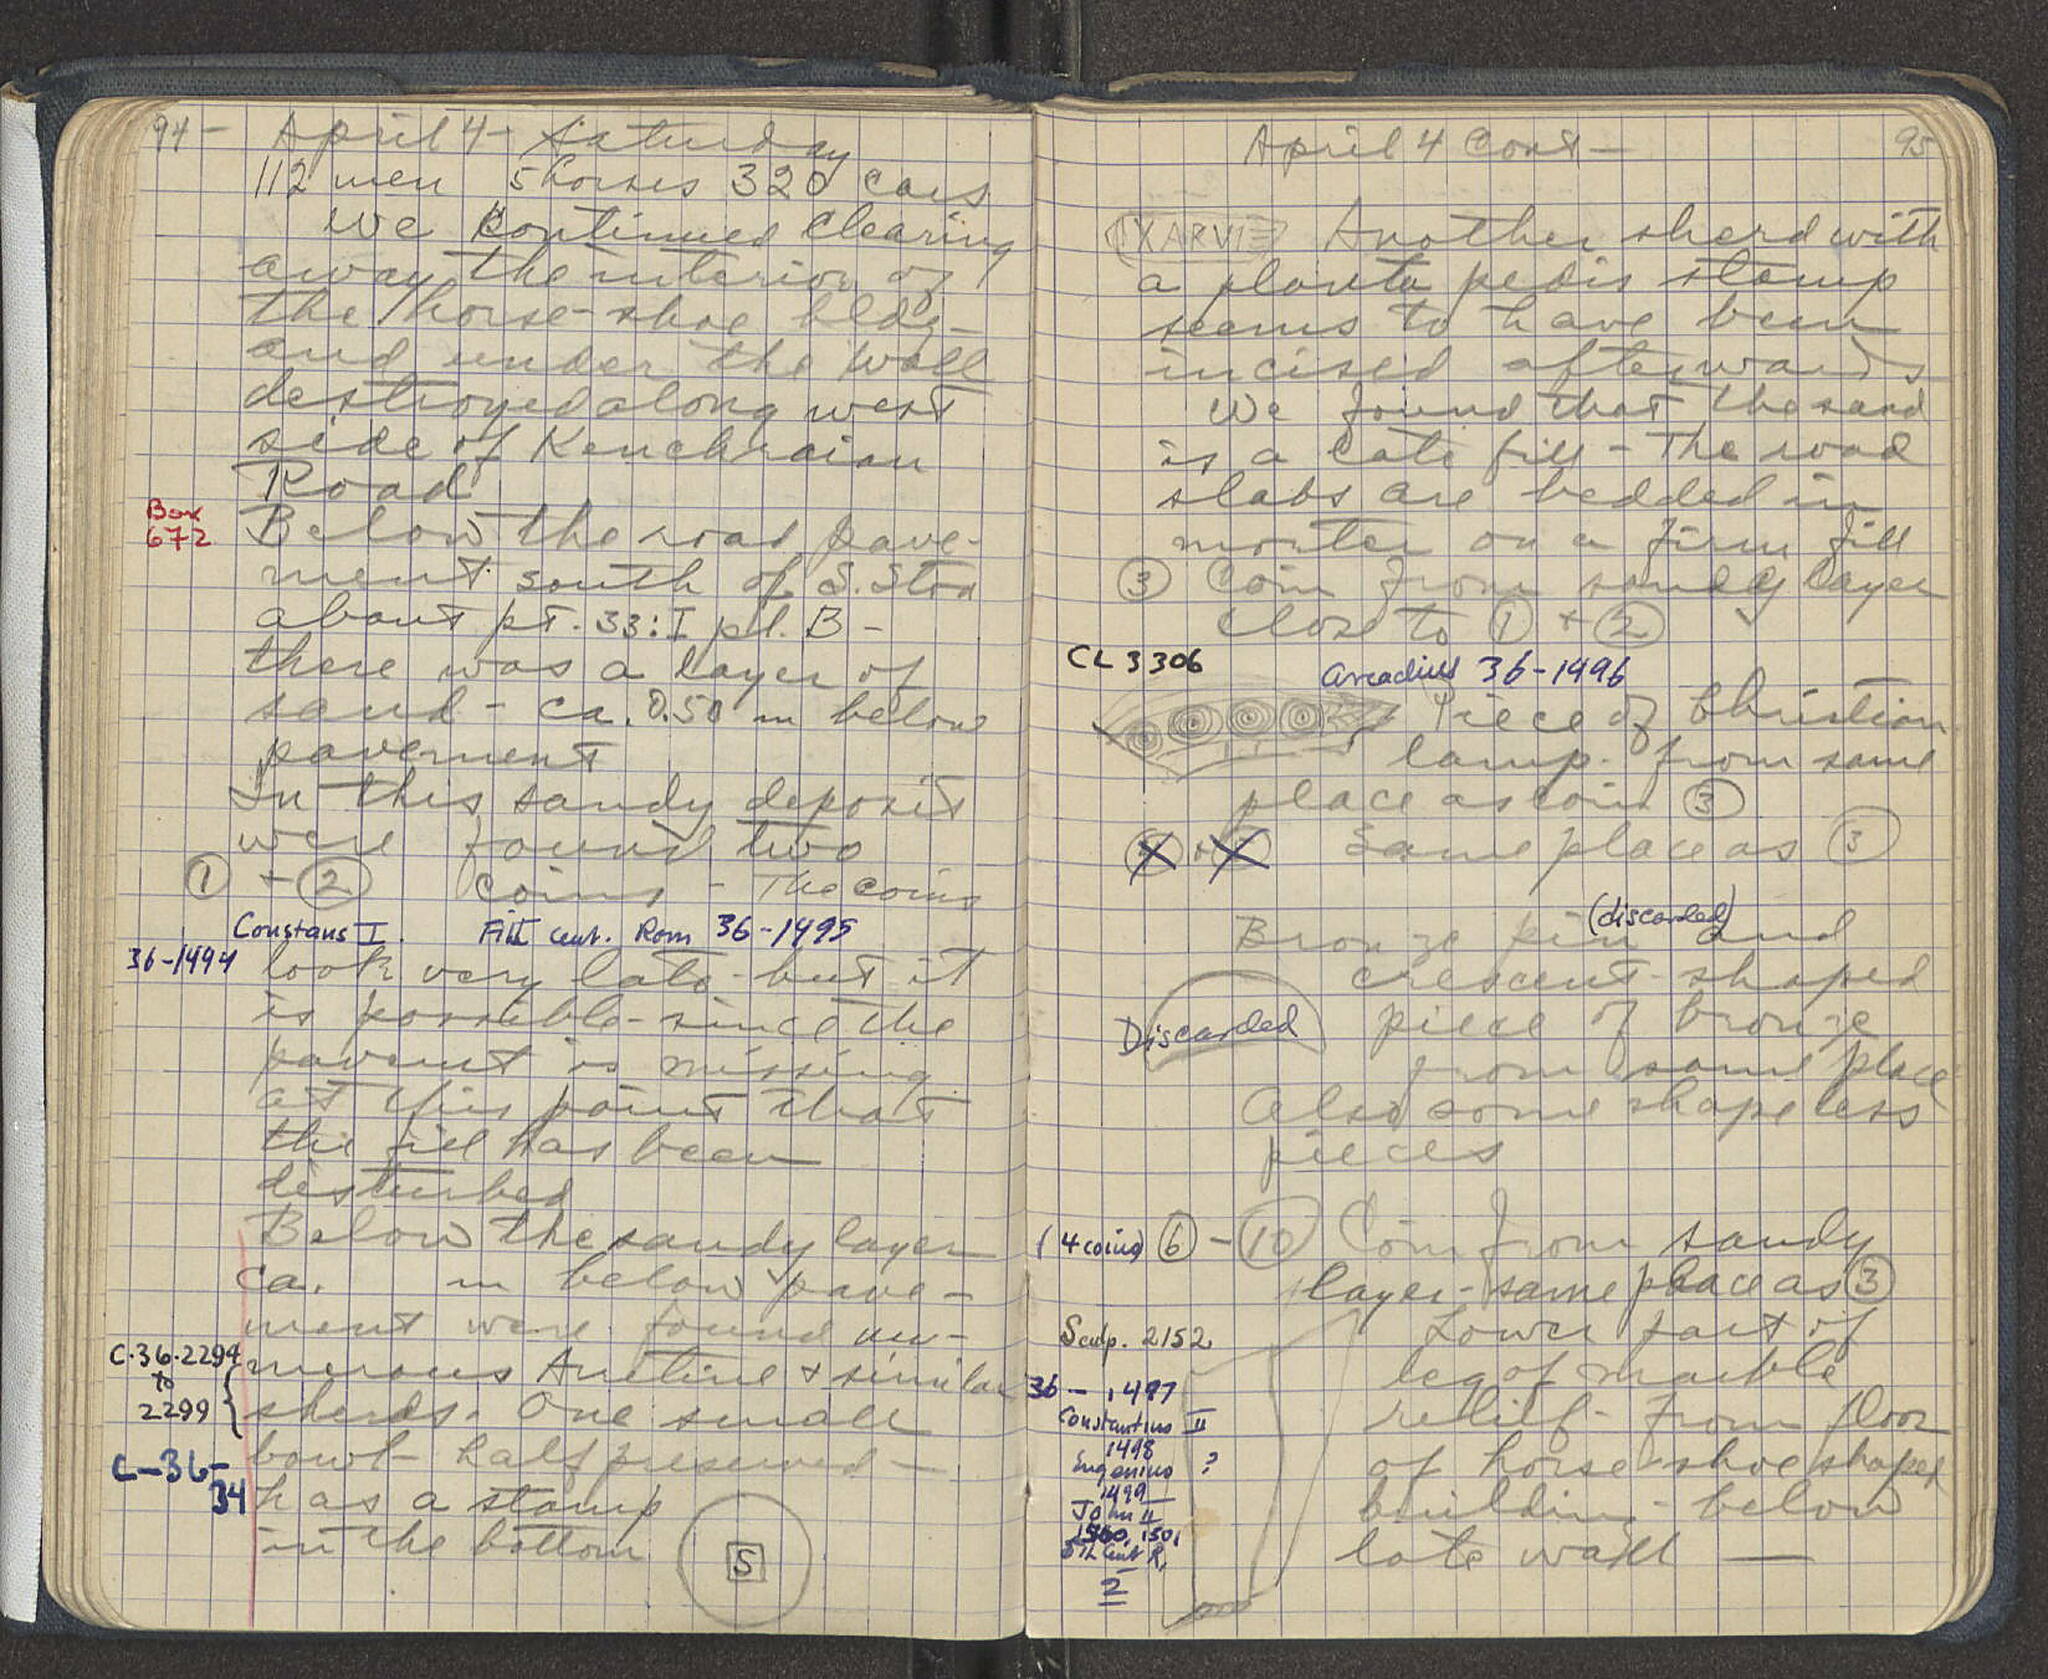 94 - April 4 - Saturday
112 men 5 horses 320 cars
We continued clearing
away the interior of
the horse-shoe bldg -
and under the wall
destroyed along west
side of Kenchraian
Road
Box
672
Below the road pave-
ment south of S. Stoa
about pt. 33:I pl. B -
there was a layer of
sand - ca. 0.50 m below
pavement
In this sandy deposit
were found two
1 + 2 coins - The coins
Constans I. Fifth cent. Rom 36-1495
36-1494 look very late - but it
is possible - since the
pavemt is missing
at this point that
the fill has been
disturbed
Below the sandy layer
ca. m below pave-
ment were found nu-
C.36.2294
to
2299
merous Arretine + similar
sherds. One small
C-36-
34
bowl - half preserved -
has a stamp
in the bottom
S
April 4 Cont - 95
XARVI Another sherd with
a planta pedis stamp
seems to have been
incised afterwards
We found that the sand
is a late fill - The road
slabs are bedded in
mortar on a firm fill
3 Coin from sandy layer
close to 1 + 2
CL 3306 Arcadius 36-1496
Piece of Christian
lamp. From same
place as coin 3
Same place as 3
(discarded)
Bronze pin and
crescent-shaped
Discarded piece of bronze
from same place
Also some shapeless
pieces
(4 coins) 6 - 10 Coin from sandy
layer - same place as 3
Sculp. 2152 Lower part of
leg of marble
36 - 1497
Constantius II
1498
Eugenius ?
1499
John II
1500, 1501
5th Cent R.
2
relief - from floor
of horse-shoe shaped
building - below
late wall —